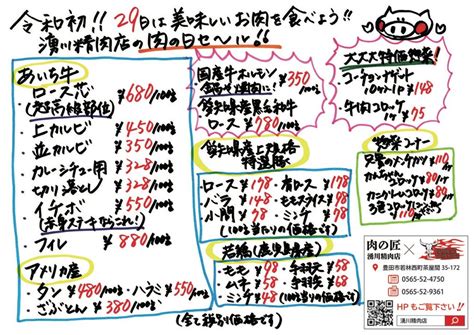 令和初!! 29日は美味しいお肉を食べよう!!
湧川精肉店の肉の日セール!!
あいち牛
ロース芯 ¥680/100g
(超高級部位)
上カルビ ¥450/100g
並カルビ ¥350/100g
カレーシチュー用 ¥328/100g
切り落とし ¥328/100g
イチボ ¥550/100g
(赤身ステーキならこれ!)
フィレ ¥880/100g
アメリカ産
タン ¥480/100g ハラミ ¥550/100g
さぶとん ¥380/100g
国産牛ホルモン
¥350/100g
愛知県産黒毛和牛
ロース ¥780/100g
愛知県産上規格
特選豚
ロース ¥198 肩ロース ¥198
バラ ¥148 ¥98
小間 ¥98 ミンチ ¥98
(100g当りの価格です)
若鶏(鹿児島産)
もも ¥98 手羽元 ¥58
ムネ ¥58 手羽先 ¥68
ミンチ ¥68 (100g当りの価格です)
(全て税別価格です)
大大大特価惣菜!
コーチンナゲット
10ヶ入り ¥148
牛肉コロッケ
¥75!
惣菜コーナー
メンチカツ ¥110
コロッケ ¥80
¥80
コロッケ ¥110
肉の匠
湧川精肉店
豊田市若林西町茶屋間 35-172
0565-52-4750
0565-52-9361
HP もご覧下さい!!
湧川精肉店